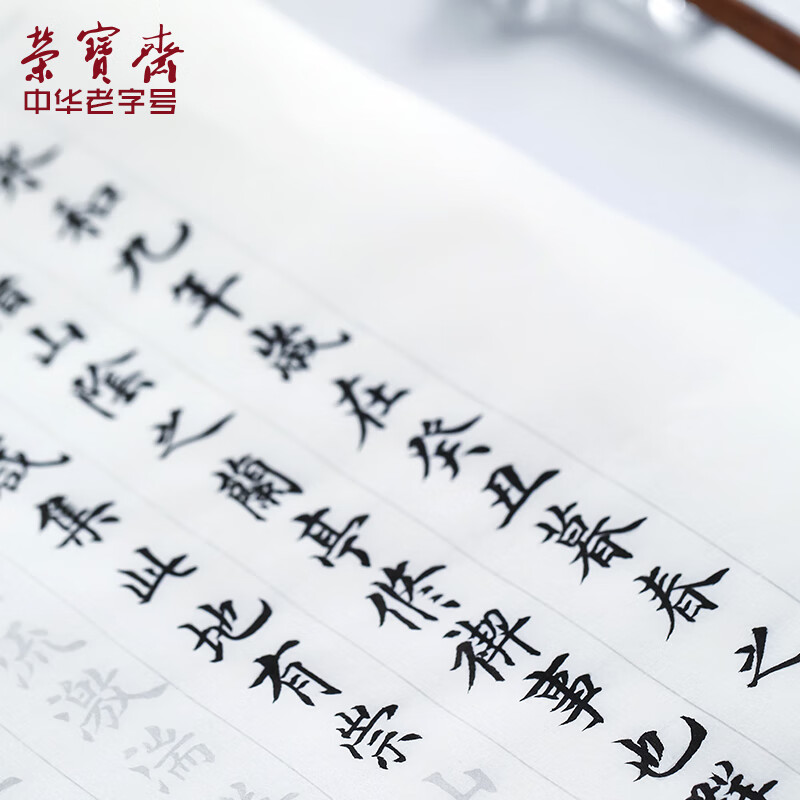 榮寶齋
中华老字号
永和九年歲在癸丑暮春之
山陰之蘭亭修禊事也
咸集此地有崇山
流激湍